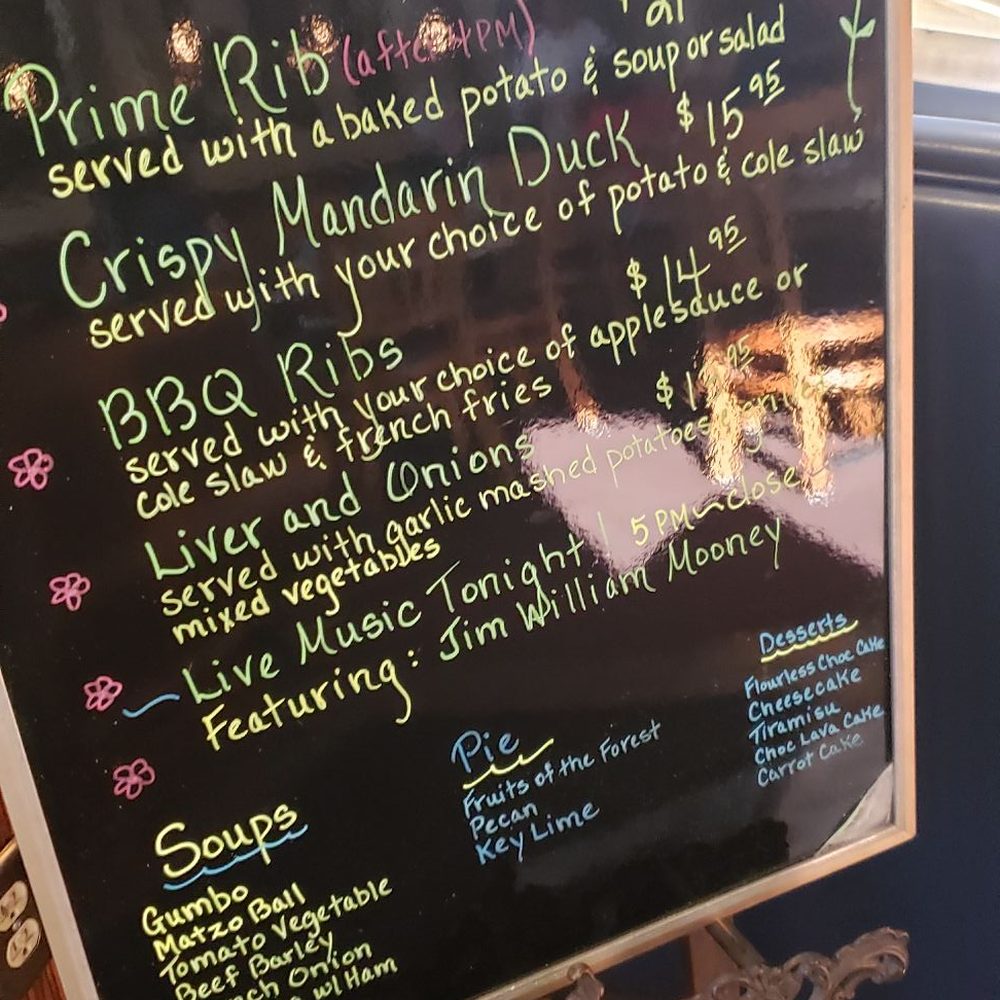 Prime Rib (after 4PM)
served with a baked potato & soup or salad
Crispy Mandarin Duck $15.95
served with your choice of potato & cole slaw
BBQ Ribs $14.95
served with your choice of applesauce or
cole slaw & french fries
Liver and Onions
served with garlic mashed potatoes
mixed vegetables
Live Music Tonight! 5PM~close
Featuring: Jim William Mooney
Soups
Gumbo
Matzo Ball
Tomato Vegetable
Beef Barley
Onion
w/ Ham
Pie
Fruits of the Forest
Pecan
Key Lime
Desserts
Flourless Choc Cake
Cheesecake
Tiramisu
Choc Lava Cake
Carrot Cake